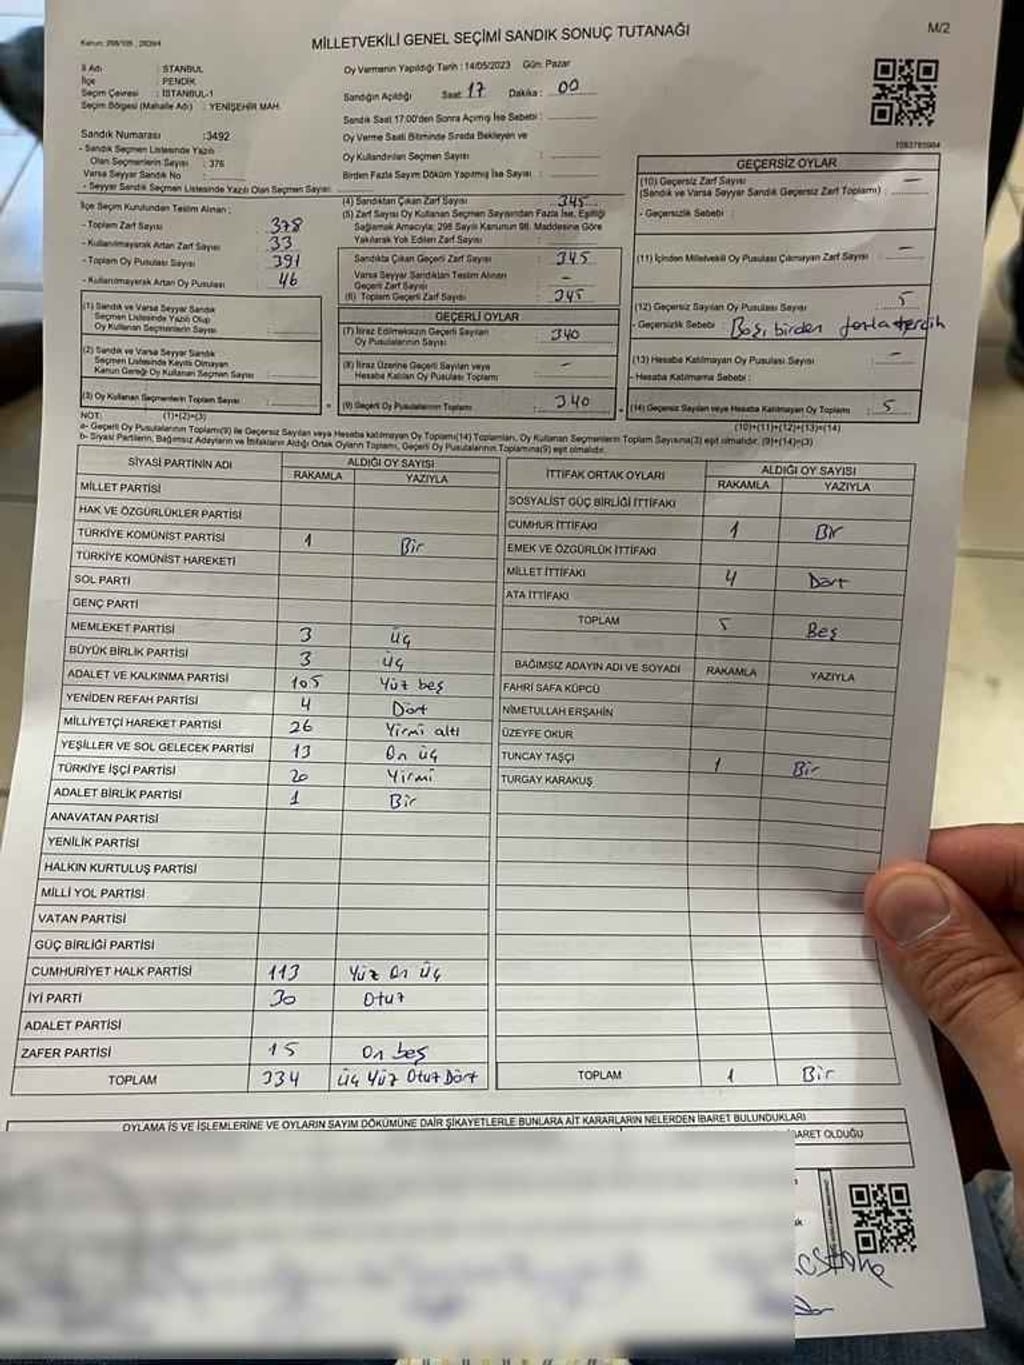 Kanun: 298/105 , 2839/4
MİLLETVEKİLİ GENEL SEÇİMİ SANDIK SONUÇ TUTANAĞI
M/2
İl Adı : İSTANBUL
İlçe : PENDİK
Seçim Çevresi : İSTANBUL-1
Seçim Bölgesi (Mahalle Adı) : YENİŞEHİR MAH.
Sandık Numarası :3492
- Sandık Seçmen Listesinde Yazılı
Olan Seçmenlerin Sayısı : 376
Varsa Seyyar Sandık No :
- Seyyar Sandık Seçmen Listesinde Yazılı Olan Seçmen Sayısı:
İlçe Seçim Kurulundan Teslim Alınan ;
- Toplam Zarf Sayısı : 378
- Kullanılmayarak Artan Zarf Sayısı : 33
- Toplam Oy Pusulası Sayısı : 391
- Kullanılmayarak Artan Oy Pusulası : 46
(1) Sandık ve Varsa Seyyar Sandık
Seçmen Listesinde Yazılı Olup
Oy Kullanan Seçmenlerin Sayısı :
(2) Sandık ve Varsa Seyyar Sandık
Seçmen Listesinde Kaydı Olmayan
Kanun Gereği Oy Kullanan Seçmen Sayısı :
(3) Oy Kullanan Seçmenlerin Toplam Sayısı :
(1)+(2)=(3)
Oy Vermenin Yapıldığı Tarih : 14/05/2023 Gün: Pazar
Sandığın Açıldığı Saat: 17 Dakika : 00
Sandık Saat 17:00'den Sonra Açılmış İse Sebebi :
Oy Verme Saati Bitiminde Sırada Bekleyen ve
Oy Kullandırılan Seçmen Sayısı :
Birden Fazla Sayım Döküm Yapılmış İse Sayısı :
(4) Sandıktan Çıkan Zarf Sayısı : 345
(5) Zarf Sayısı Oy Kullanan Seçmen Sayısından Fazla İse, Eşitliği
Sağlamak Amacıyla; 298 Sayılı Kanunun 98. Maddesine Göre
Yakılarak Yok Edilen Zarf Sayısı :
Sandıkta Çıkan Geçerli Zarf Sayısı : 345
Varsa Seyyar Sandıktan Teslim Alınan
Geçerli Zarf Sayısı : -
(6) Toplam Geçerli Zarf Sayısı : 345
GEÇERLİ OYLAR
(7) İtiraz Edilmeksizin Geçerli Sayılan
Oy Pusulalarının Sayısı : 340
(8) İtiraz Üzerine Geçerli Sayılan veya
Hesaba Katılan Oy Pusulası Toplamı : -
(9) Geçerli Oy Pusulalarının Toplamı : 340
1083785904
GEÇERSİZ OYLAR
(10) Geçersiz Zarf Sayısı
(Sandık ve Varsa Seyyar Sandık Geçersiz Zarf Toplamı) : -
- Geçersizlik Sebebi :
(11) İçinden Milletvekili Oy Pusulası Çıkmayan Zarf Sayısı : -
(12) Geçersiz Sayılan Oy Pusulası Sayısı : 5
- Geçersizlik Sebebi : Beşi birden fazla tercih
(13) Hesaba Katılmayan Oy Pusulası Sayısı : -
- Hesaba Katılmama Sebebi :
(14) Geçersiz Sayılan veya Hesaba Katılmayan Oy Toplamı : 5
(10)+(11)+(12)+(13)=(14)
NOT:
a- Geçerli Oy Pusulaların Toplamı(9) ile Geçersiz Sayılan veya Hesaba katılmayan Oy Toplamı(14) Toplamları, Oy Kullanan Seçmenlerin Toplam Sayısına(3) eşit olmalıdır. (9)+(14)=(3)
b- Siyasi Partilerin, Bağımsız Adayların ve İttifakların Aldığı Ortak Oyların Toplamı, Geçerli Oy Pusulalarının Toplamına(9) eşit olmalıdır.
SİYASİ PARTİNİN ADI ALDIĞI OY SAYISI
RAKAMLA YAZIYLA
MİLLET PARTİSİ
HAK VE ÖZGÜRLÜKLER PARTİSİ
TÜRKİYE KOMÜNİST PARTİSİ 1 Bir
TÜRKİYE KOMÜNİST HAREKETİ
SOL PARTİ
GENÇ PARTİ
MEMLEKET PARTİSİ 3 üç
BÜYÜK BİRLİK PARTİSİ 3 üç
ADALET VE KALKINMA PARTİSİ 105 Yüz beş
YENİDEN REFAH PARTİSİ 4 Dört
MİLLİYETÇİ HAREKET PARTİSİ 26 Yirmi altı
YEŞİLLER VE SOL GELECEK PARTİSİ 13 On üç
TÜRKİYE İŞÇİ PARTİSİ 20 Yirmi
ADALET BİRLİK PARTİSİ 1 Bir
ANAVATAN PARTİSİ
YENİLİK PARTİSİ
HALKIN KURTULUŞ PARTİSİ
MİLLİ YOL PARTİSİ
VATAN PARTİSİ
GÜÇ BİRLİĞİ PARTİSİ
CUMHURİYET HALK PARTİSİ 113 Yüz On üç
İYİ PARTİ 30 Otuz
ADALET PARTİSİ
ZAFER PARTİSİ 15 On beş
TOPLAM 334 üç Yüz Otuz Dört
İTTİFAK ORTAK OYLARI ALDIĞI OY SAYISI
RAKAMLA YAZIYLA
SOSYALİST GÜÇ BİRLİĞİ İTTİFAKI
CUMHUR İTTİFAKI 1 Bir
EMEK VE ÖZGÜRLÜK İTTİFAKI
MİLLET İTTİFAKI 4 Dört
ATA İTTİFAKI
TOPLAM 5 Beş
BAĞIMSIZ ADAYIN ADI VE SOYADI RAKAMLA YAZIYLA
FAHRİ SAFA KÜPCÜ
NİMETULLAH ERŞAHİN
ÜZEYFE OKUR
TUNCAY TAŞÇI 1 Bir
TURGAY KARAKUŞ
TOPLAM 1 Bir
OYLAMA İŞ VE İŞLEMLERİNE VE OYLARIN SAYIM DÖKÜMÜNE DAİR ŞİKAYETLERLE BUNLARA AİT KARARLARIN NELERDEN İBARET BULUNDUKLARI
BARET OLDUĞU